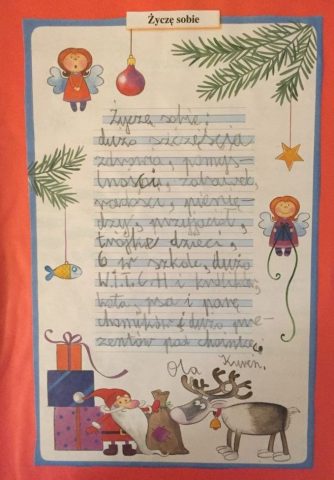 Życzę sobie
Życzę sobie:
dużo szczęścia
zdrowia, pomyś-
lności, zabawek,
radości, pienię-
dzy, przyjaciół,
trójkę dzieci,
6 w szkole, dużo
W.I.T.C.H i królika,
kota, psa i parę
chomików i dużo pre-
zentów pod choinkę.
Ola